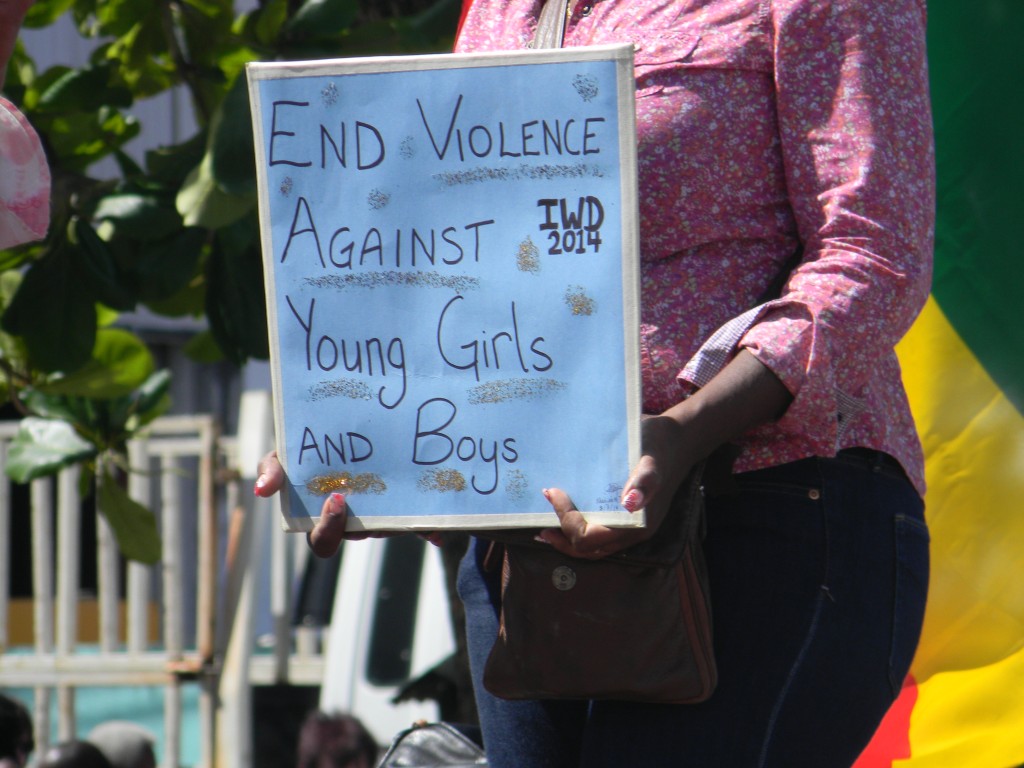 END VIOLENCE
AGAINST
IWD
2014
Young Girls
AND Boys